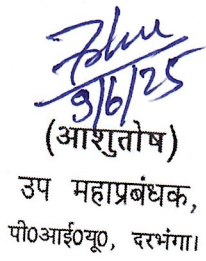 9/6/25
(आशुतोष)
उप महाप्रबंधक,
पी0आई0यू0, दरभंगा।